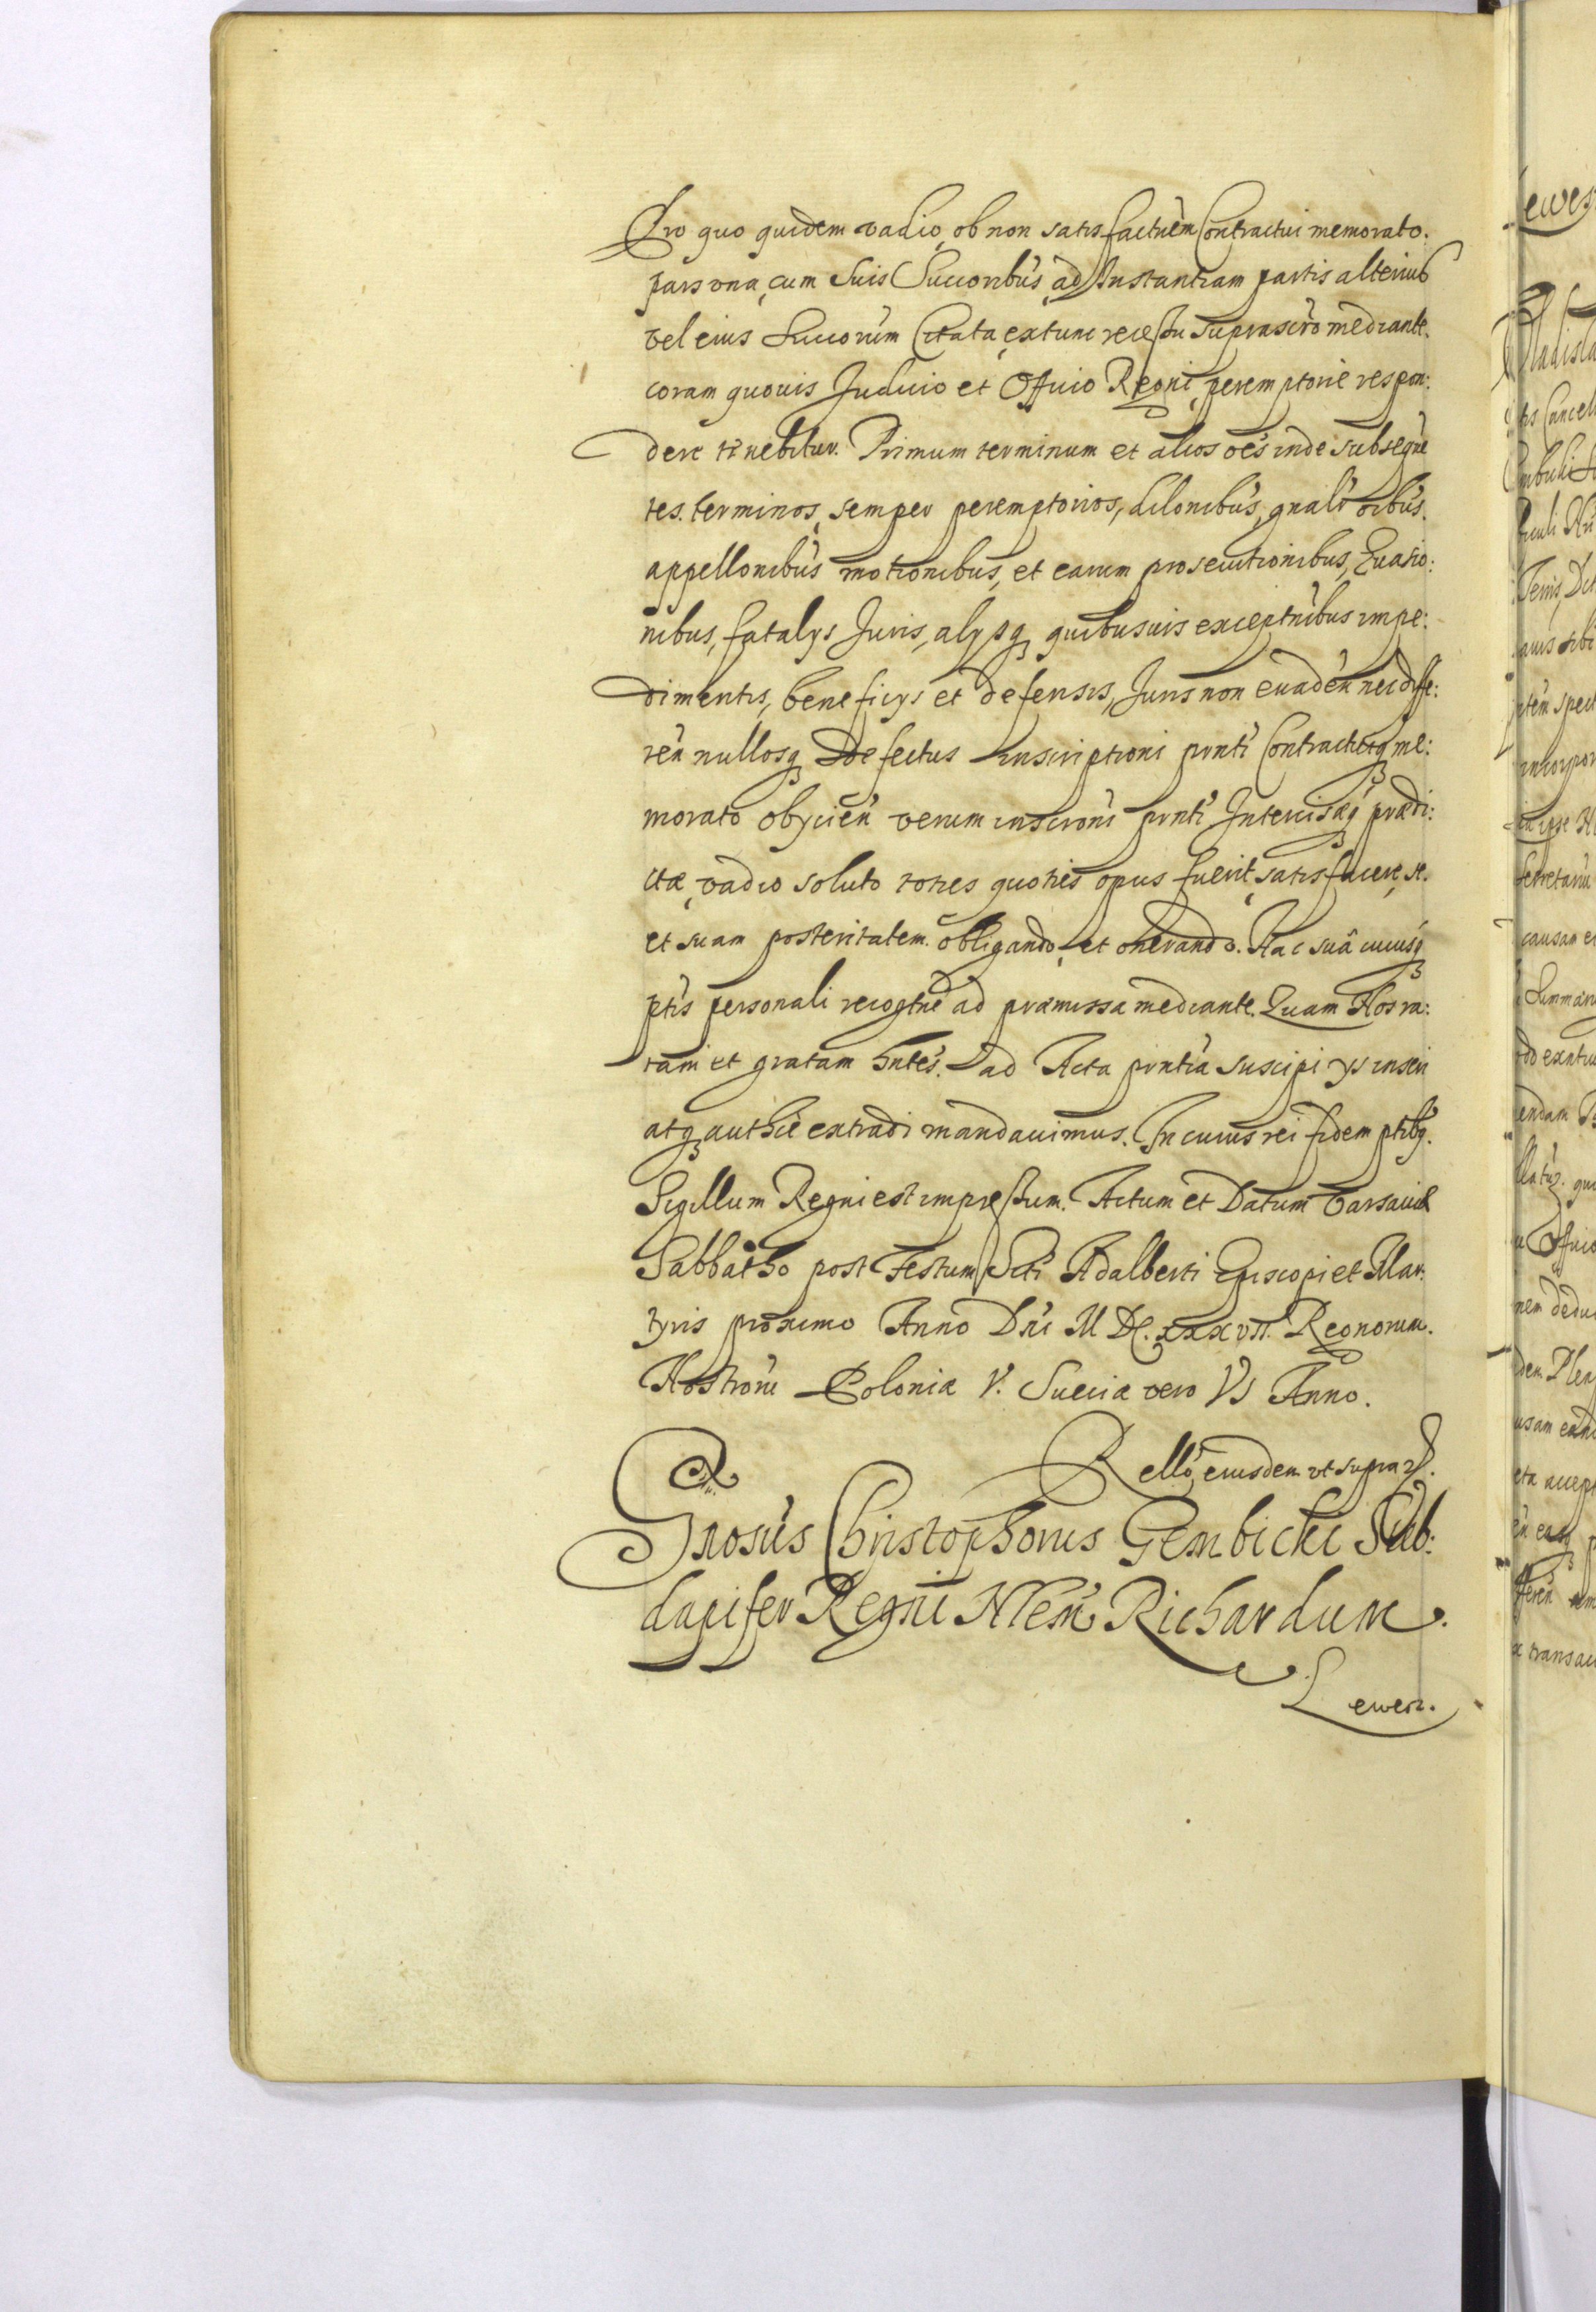 Pro quo quidem vadio, ob non satisfactnem Contractui memorato.
pars una, cum suis Succoribus, ad Instantiam partis alterius
vel eius Succorum Citata, extunc recessu suprascrõ mediante.
coram quovis Judicio et Officio Regni, peremptorie respon:
dere tenebitur. Primum terminum et alios oẽs inde subseqũe
tes. terminos, semper peremptorios, dilonibus, gnalibus oibus.
appellonibus motionibus, et earum prosecutionibus, Evasio:
nibus, fatalys Juris, alysq quibusvis exceptnibus impe:
dimentis, beneficys et defensis, Juris non evadẽn nec diffe:
rẽn nullosq Defectus inscriptioni pñti Contractuiq me:
morato obyciẽn verum inscroni pñti Intercisæq prædi:
ctæ, vadio soluto toties quoties opus fuerit, satisfacere, se.
et suam posteritatem obligando, et onerando. Hac suâ cuiusq
ptis personali recogtne ad præmissa mediante. Quam Nos ra:
tam et gratam hntẽs. ad Acta pñtia suscipi ys inseri
atq authce extradi mandavimus. In cuius rei fidem ptibq.
Sigillum Regni est impressum. Actum et Datum Varsaviæ
Sabbatho post Festum Scti Adalberti Episcopi et Mar:
tyris proximo Anno Dñi MDC.XXXVII. Regnorum.
Nostroru Poloniæ V. Sueciæ vero VI Anno.
Rello eiusdem ut supra
Gnosus Christophorus Gembicki Sub:
dapifer Regni Nlem Richardum.
Lewen.